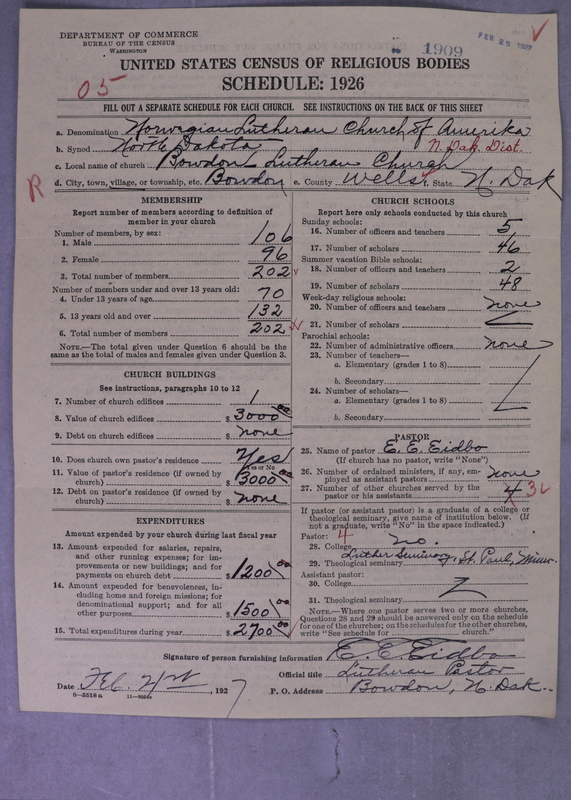 DEPARTMENT OF COMMERCE
BUREAU OF THE CENSUS
WASHINGTON
1909
FEB 25 1927
UNITED STATES CENSUS OF RELIGIOUS BODIES
SCHEDULE: 1926
05
FILL OUT A SEPARATE SCHEDULE FOR EACH CHURCH. SEE INSTRUCTIONS ON THE BACK OF THIS SHEET
a. Denomination Norwegian Lutheran Church of Amerika
b. Synod North Dakota N. Dak. Dist.
c. Local name of church Bowdon Lutheran Church
R
d. City, town, village, or township, etc. Bowdon e. County Wells f. State N. Dak
MEMBERSHIP
Report number of members according to definition of member in your church
Number of members, by sex:
1. Male 106
2. Female 96
3. Total number of members 202
Number of members under and over 13 years old:
4. Under 13 years of age 70
5. 13 years old and over 132
6. Total number of members 202
NOTE.—The total given under Question 6 should be the same as the total of males and females given under Question 3.
CHURCH BUILDINGS
See instructions, paragraphs 10 to 12
7. Number of church edifices 1
8. Value of church edifices $ 3000 00
9. Debt on church edifices $ none
10. Does church own pastor's residence Yes
Yes or No
11. Value of pastor's residence (if owned by church) $ 3000 00
12. Debt on pastor's residence (if owned by church) $ none
EXPENDITURES
Amount expended by your church during last fiscal year
13. Amount expended for salaries, repairs, and other running expenses; for improvements or new buildings; and for payments on church debt $ 1200 00
14. Amount expended for benevolences, including home and foreign missions; for denominational support; and for all other purposes $ 1500 00
15. Total expenditures during year $ 2700 00
CHURCH SCHOOLS
Report here only schools conducted by this church
Sunday schools:
16. Number of officers and teachers 5
17. Number of scholars 46
Summer vacation Bible schools:
18. Number of officers and teachers 2
19. Number of scholars 48
Week-day religious schools:
20. Number of officers and teachers none
21. Number of scholars
Parochial schools:
22. Number of administrative officers none
23. Number of teachers—
a. Elementary (grades 1 to 8)
b. Secondary
24. Number of scholars—
a. Elementary (grades 1 to 8)
b. Secondary
PASTOR
25. Name of pastor E. E. Eidbo
(If church has no pastor, write "None")
26. Number of ordained ministers, if any, employed as assistant pastors none
27. Number of other churches served by the pastor or his assistants 4 3
If pastor (or assistant pastor) is a graduate of a college or theological seminary, give name of institution below. (If not a graduate, write "No" in the space indicated.)
Pastor: 4
28. College no.
29. Theological seminary Luther Seminary of St. Paul, Minn.
Assistant pastor:
30. College
31. Theological seminary
NOTE.—Where one pastor serves two or more churches, Questions 28 and 29 should be answered only on the schedule for one of the churches; on the schedules for the other churches, write "See schedule for church."
Signature of person furnishing information E. E. Eidbo
Official title Lutheran Pastor
Date Feb. 21st, 1927 P. O. Address Bowdon, N. Dak.
8—5518 a